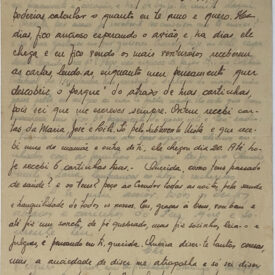 poderias calcular o quanto eu te amo e quero. Ha
dias fico ancioso esperando o avião e ha dias ele
chega e eu fico vendo os mais venturosos receberem
as cartas, lendo-as, enquanto meu pensamento quer
descobrir o "porque" do atrazo de tuas cartinhas,
pois sei que me escreves sempre. Ontem recebi car-
tas da Maria José e
bi uma de mamãe e outra de ti, ele chegou dia 20. Até ho-
je recebi 6 cartinhas tuas. Querida como tens passado
de saude? e os teus? peço ao Senhor todas as noites pela saude
e tranquilidade de todos os nossos. Eu, graças a Deus vou bem e
até fiz um soneto, de pé quebrado, mas fiz sosinho,
julgues, é pensando em ti, querida. Queria dizer-te tantas coisas
mas a anciedade de dizer me atrapalha e só sei dizer